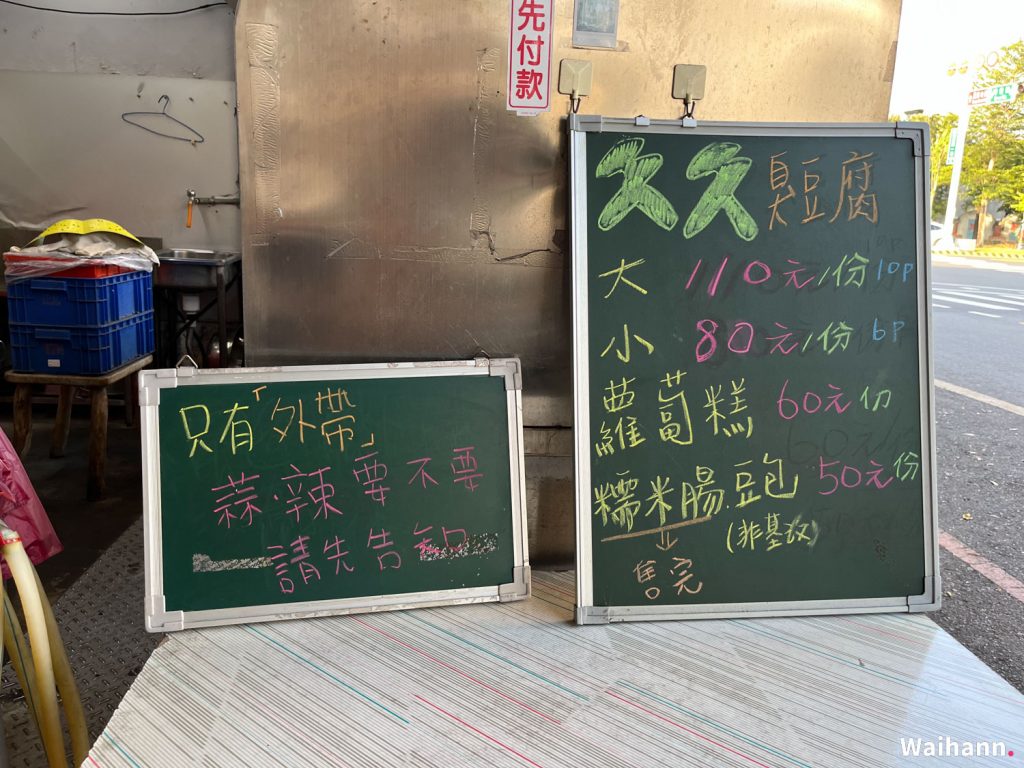 先付款
久久臭豆腐
大 110元/份 10P
小 80元/份 6P
蘿蔔糕 60元份
糯米腸.豆包 50元份
(非基改)
售完
只有「外帶」
蒜.辣要不要
請先告知
Waihann.